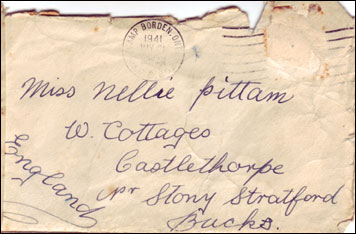 CAMP BORDEN. ONT
1941
Miss Nellie Pittam
W. Cottages
Castlethorpe
nr Stony Stratford
Bucks.
England